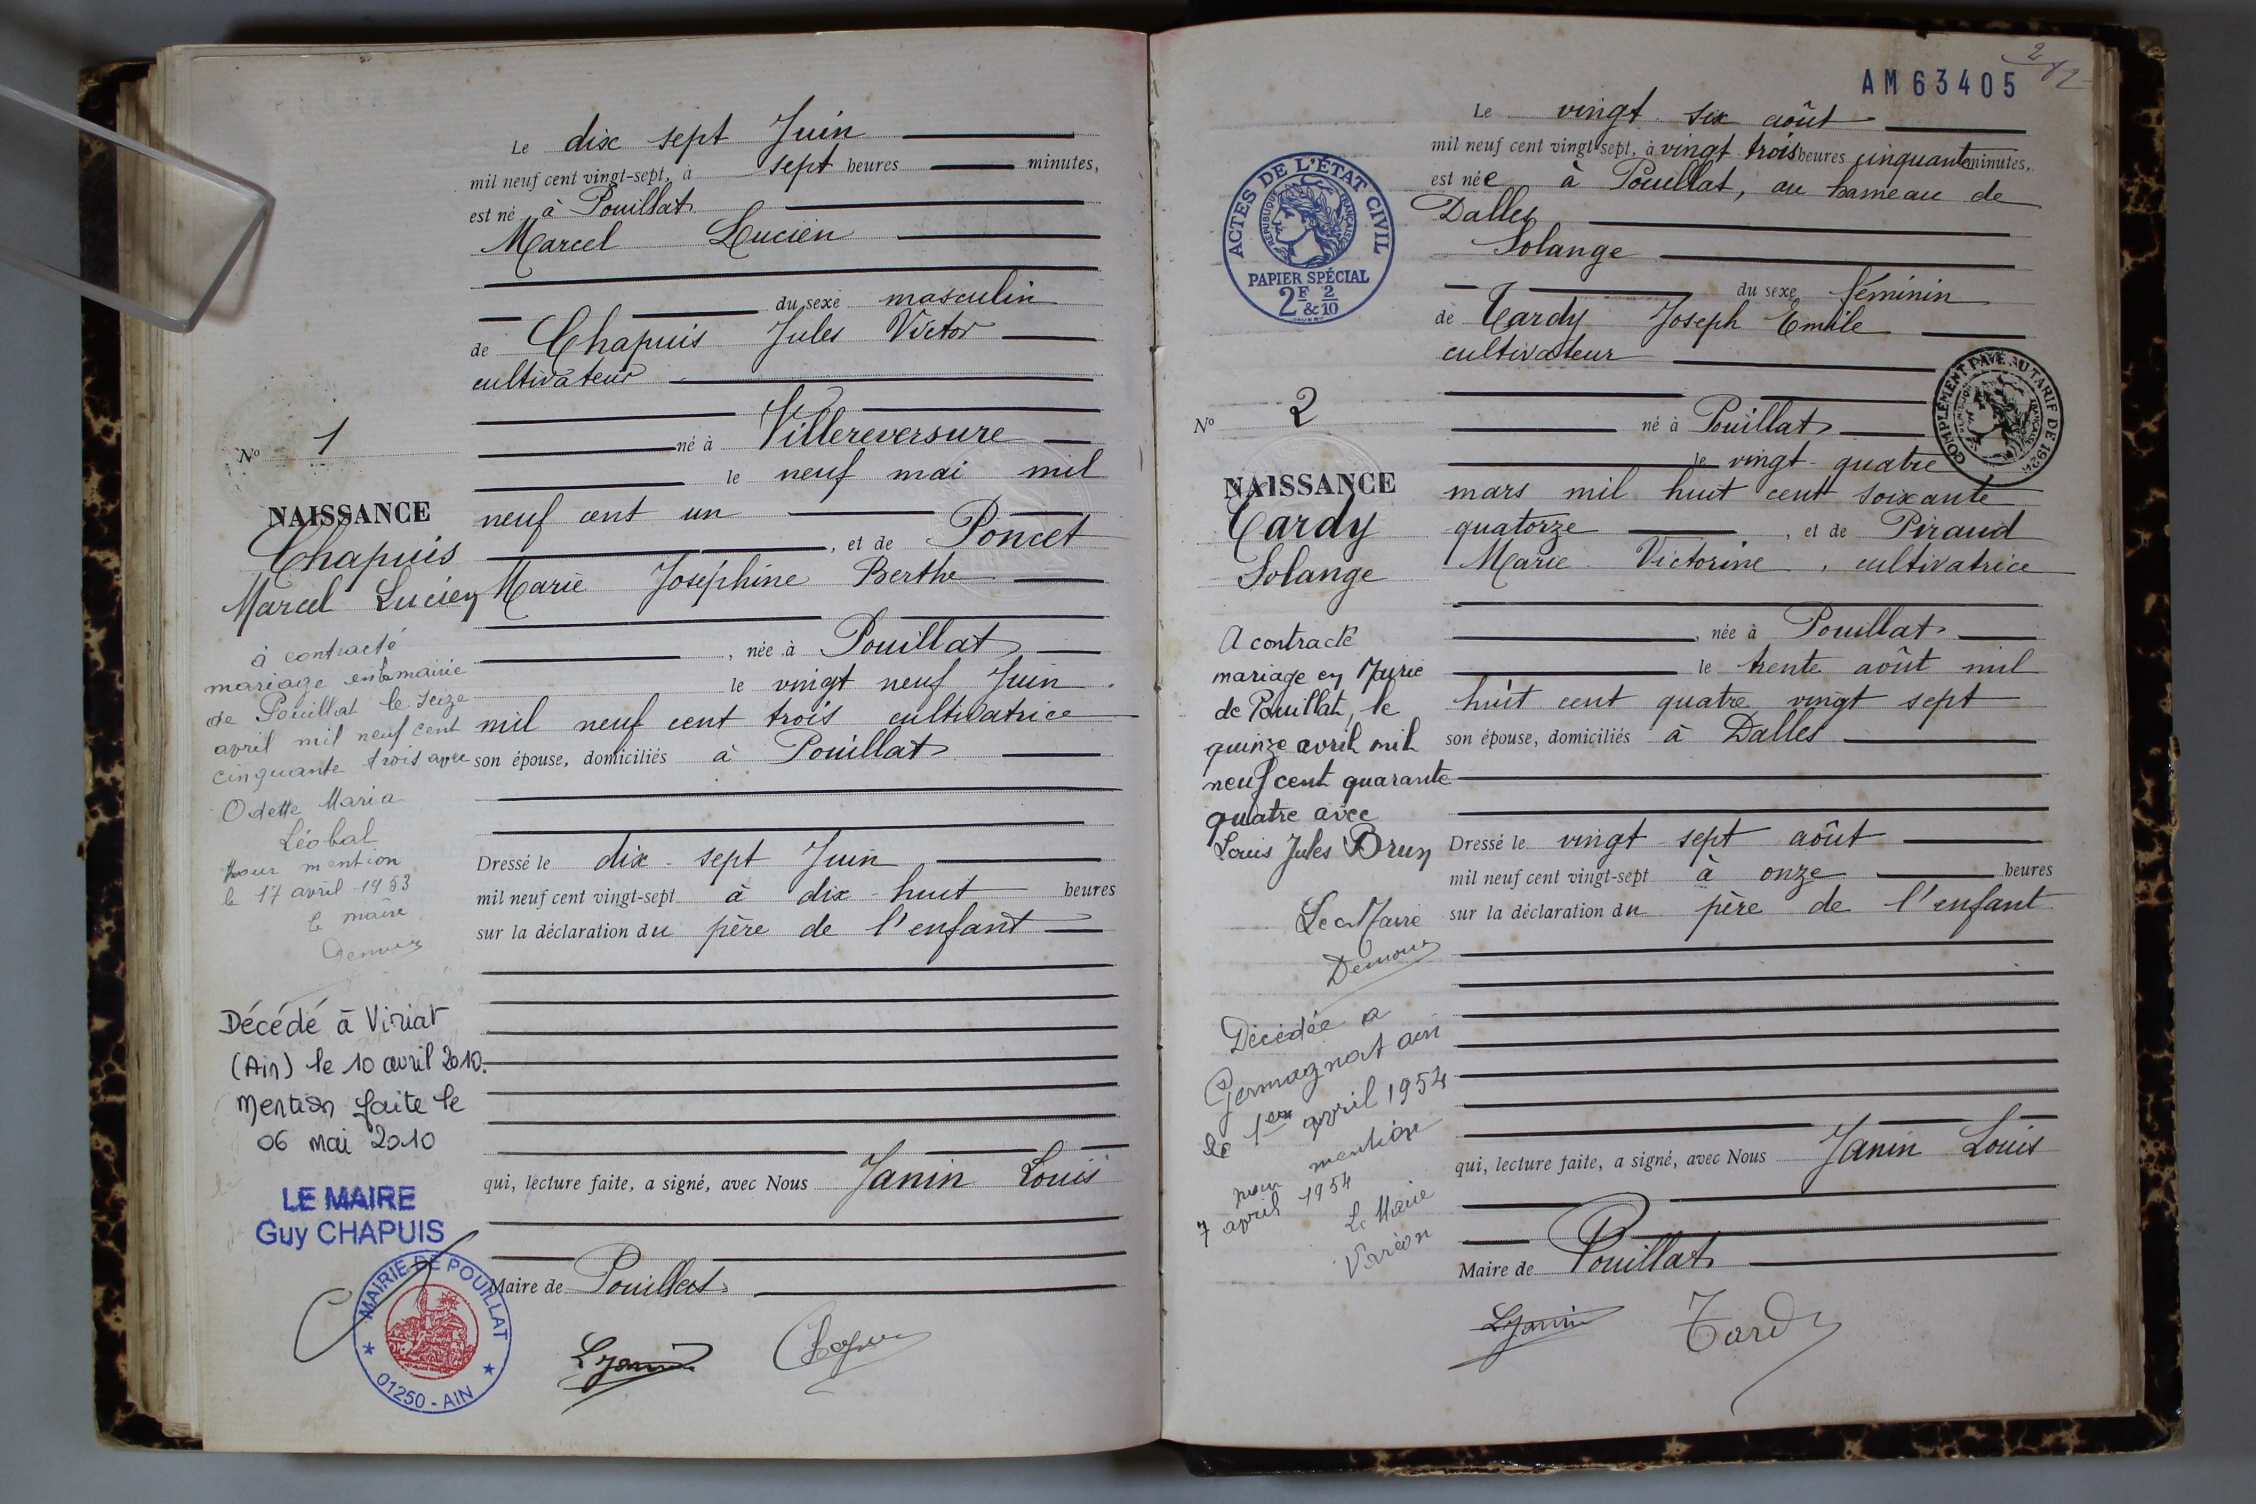 Le dix sept Juin
mil neuf cent vingt-sept, à sept heures minutes,
est né à Pouillat
Marcel Lucien
du sexe masculin
de Chapuis Jules Victor
cultivateur
né à Villereversure
le neuf mai mil
neuf cent un
, et de Poncet
Marie Joséphine Berthe
, née à Pouillat
le vingt neuf Juin
mil neuf cent trois cultivatrice
son épouse, domiciliés à Pouillat
Dressé le dix-sept Juin
mil neuf cent vingt-sept à dix-huit heures
sur la déclaration du père de l'enfant
qui, lecture faite, a signé, avec Nous Janin Louis
Maire de Pouillat
LJanin
N° 1
NAISSANCE
Chapuis
Marcel Lucien
à contracté
mariage en la mairie
de Pouillat le seize
avril mil neuf cent
cinquante trois avec
Odette Maria
Léobal
Pour mention
le 17 avril 1953
le maire
Décédé à Viriat
(Ain) le 10 avril 2010.
Mention faite le
06 mai 2010
LE MAIRE
Guy CHAPUIS
MAIRIE DE POUILLAT
01250 - AIN
AM63405
2
Le vingt six août
mil neuf cent vingt-sept, à vingt trois heures cinquante minutes,
est née à Pouillat, au hameau de
Dalles
Solange
du sexe féminin
de Tardy Joseph Emile
cultivateur
né à Pouillat
le vingt-quatre
mars mil huit cent soixante
quatorze , et de Piraud
Marie Victorine, cultivatrice
, née à Pouillat
le trente août mil
huit cent quatre vingt sept
son épouse, domiciliés à Dalles
Dressé le vingt sept août
mil neuf cent vingt-sept à onze heures
sur la déclaration du père de l'enfant
qui, lecture faite, a signé, avec Nous Janin Louis
Maire de Pouillat
LJanin Tardy
ACTES DE L'ÉTAT CIVIL
RÉPUBLIQUE FRANÇAISE
PAPIER SPÉCIAL
2F & 2/10
COMPLÉMENT PAYÉ AU TARIF DE 1926
N° 2
NAISSANCE
Tardy
Solange
A contracté
mariage en Mairie
de Pouillat, le
quinze avril mil
neuf cent quarante
quatre avec
Louis Jules Brun
Le Maire
Décédée a
Germagnat ain
le 1er avril 1954
mention
7 avril 1954
Le Maire